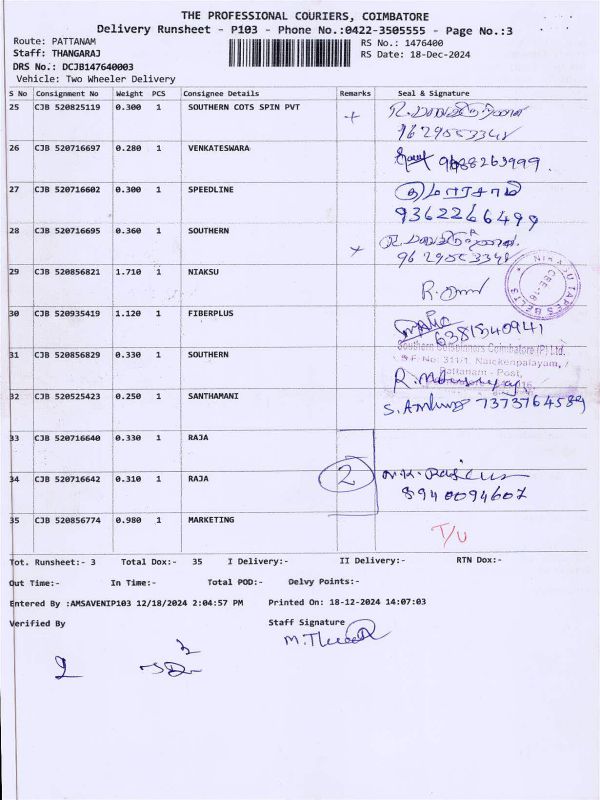 THE PROFESSIONAL COURIERS, COIMBATORE
Delivery Runsheet - P103 - Phone No.:0422-3505555 - Page No.:3
Route: PATTANAM
RS No.: 1476400
Staff: THANGARAJ
RS Date: 18-Dec-2024
DRS No.: DCJB147640003
Vehicle: Two Wheeler Delivery
S No Consignment No Weight PCS Consignee Details Remarks Seal & Signature
25 CJB 520825119 0.300 1 SOUTHERN COTS SPIN PVT
26 CJB 520716697 0.280 1 VENKATESWARA
27 CJB 520716602 0.300 1 SPEEDLINE
9362266499
28 CJB 520716695 0.360 1 SOUTHERN
29 CJB 520856821 1.710 1 NIAKSU
30 CJB 520935419 1.120 1 FIBERPLUS
6381540941
Southern Cotspinners Coimbatore (P) Ltd.
S.F. No: 311/1, Naickenpalayam,
Pattanam - Post,
31 CJB 520856829 0.330 1 SOUTHERN
32 CJB 520525423 0.250 1 SANTHAMANI
7373764589
33 CJB 520716640 0.330 1 RAJA
34 CJB 520716642 0.310 1 RAJA 2
8940094607
35 CJB 520856774 0.980 1 MARKETING T/U
Tot. Runsheet:- 3 Total Dox:- 35 I Delivery:- II Delivery:- RTN Dox:-
Out Time:- In Time:- Total POD:- Delvy Points:-
Entered By :AMSAVENIP103 12/18/2024 2:04:57 PM Printed On: 18-12-2024 14:07:03
Verified By Staff Signature